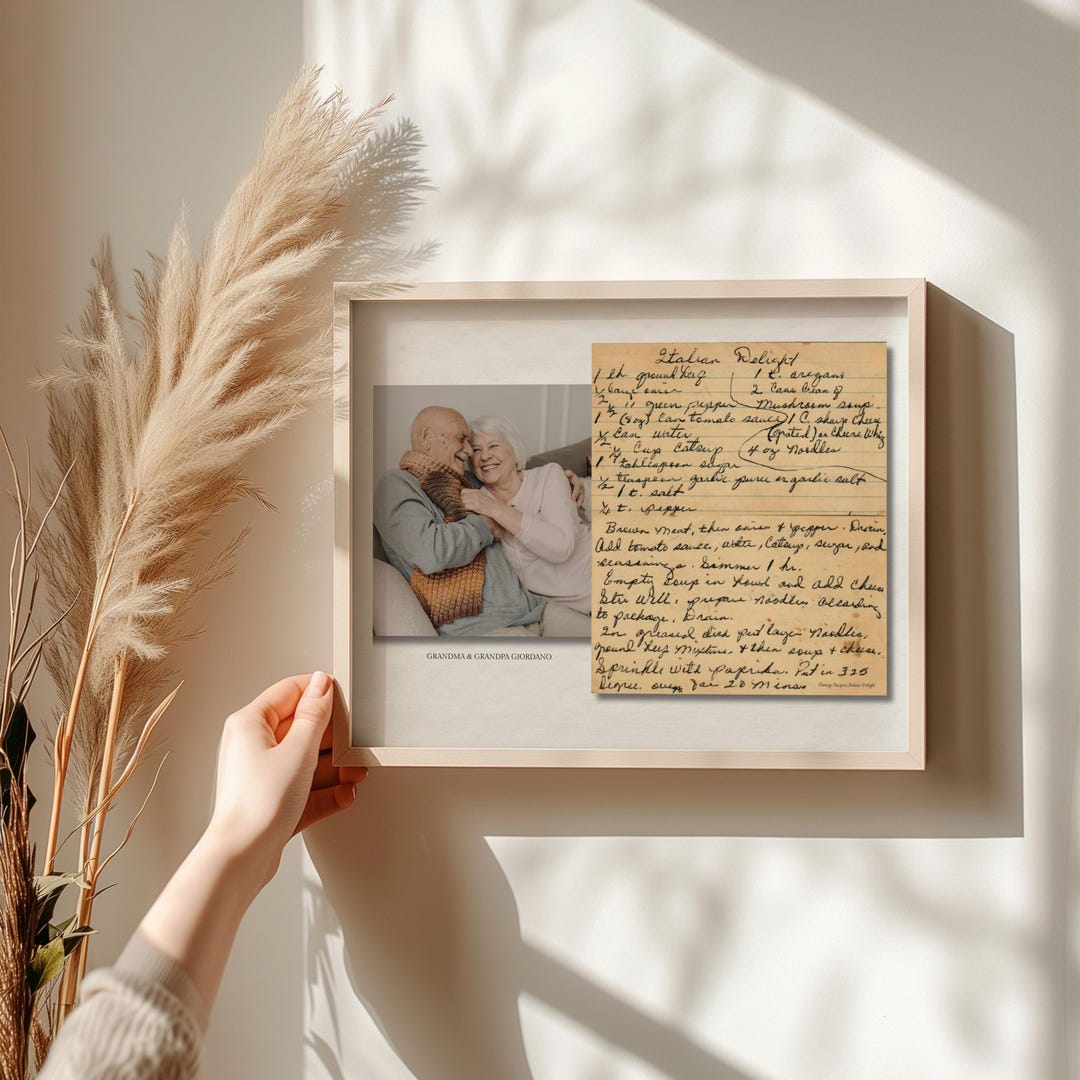 GRANDMA & GRANDPA GIORDANO
Italian Delight
1 lb. ground beef
1 t. oregano
½ large onion
2 cans cream of
½ " green pepper
Mushroom soup.
1 (8oz) can tomato sauce
1 C. sharp cheese
½ can water
(grated) or Cheese Whiz
¼ cup catsup
4 oz noodles
1 tablespoon sugar
½ teaspoon garlic puree or garlic salt
1 t. salt
¼ t. pepper
Brown meat, then onion & pepper. Drain.
Add tomato sauce, water, catsup, sugar, and
seasonings. Simmer 1 hr.
Empty soup in bowl and add cheese
Stir well. prepare noodles according
to package, Drain.
In greased dish put layer noodles,
ground beef mixture, & then soup & cheese.
Sprinkle with paprika. Put in 325
degree oven for 20 mins